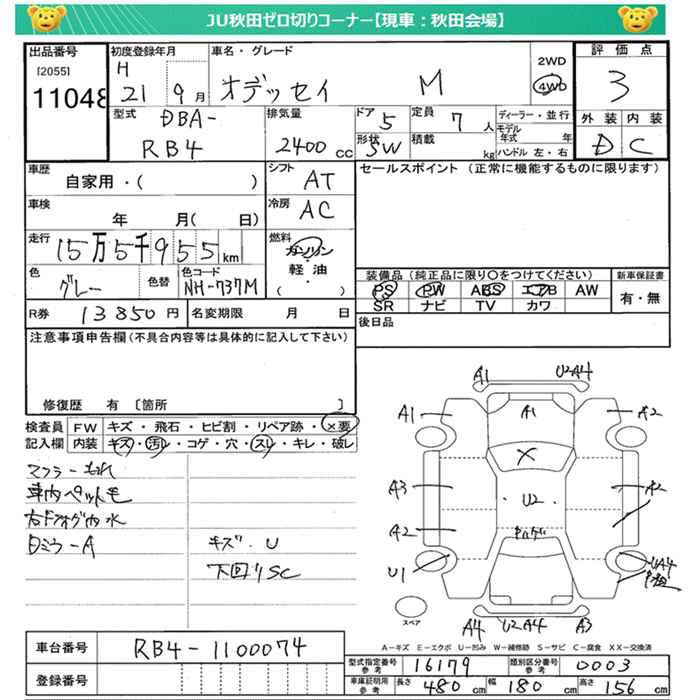 JU秋田ゼロ切りコーナー【現車：秋田会場】
出品番号
[2055]
11048
初度登録年月
H
21 9月
車名・グレード
オデッセイ M
2WD
4WD
評価点
3
型式
DBA-
RB4
排気量
2400 cc
ドア 5
定員 7 人
形状 SW
積載 kg
ディーラー・並行
モデル年式 年
ハンドル 左・右
外装 内装
D C
車歴
自家用・( )
シフト
AT
セールスポイント (正常に機能するものに限ります)
車検
年 月( 日)
冷房
AC
走行
15万5千955km
燃料
ガソリン
軽・油
( )
色
グレー
色替
色コード
NH-737M
装備品 (純正品に限り○をつけてください)
新車保証書
PS PW ABS エアB AW
SR ナビ TV カワ
有・無
R券 13850円
名変期限 月 日
後日品
注意事項申告欄(不具合内容等は具体的に記入して下さい)
修復歴 有 〔箇所 〕
検査員記入欄
FW キズ・飛石・ヒビ割・リペア跡・×要
内装 キズ・汚レ・コゲ・穴・スレ・キレ・破レ
マフラーもれ
車内ペット毛
右Fフォグ内水
日ミラーA
キズ・U
下回りSC
A1 U2A4
A1 A1 A2
X
A3 U2 A2
A2
U1 UA4
A4 U2A4 A3
スペア
A－キズ E－エクボ U－凹み W－補修跡 S－サビ C－腐食 XX－交換済
車台番号 RB4-1100074
登録番号
型式指定番号参考 16179
類別区分番号参考 0003
車庫証明用参考 長さ 480cm 幅 180cm 高さ 156cm